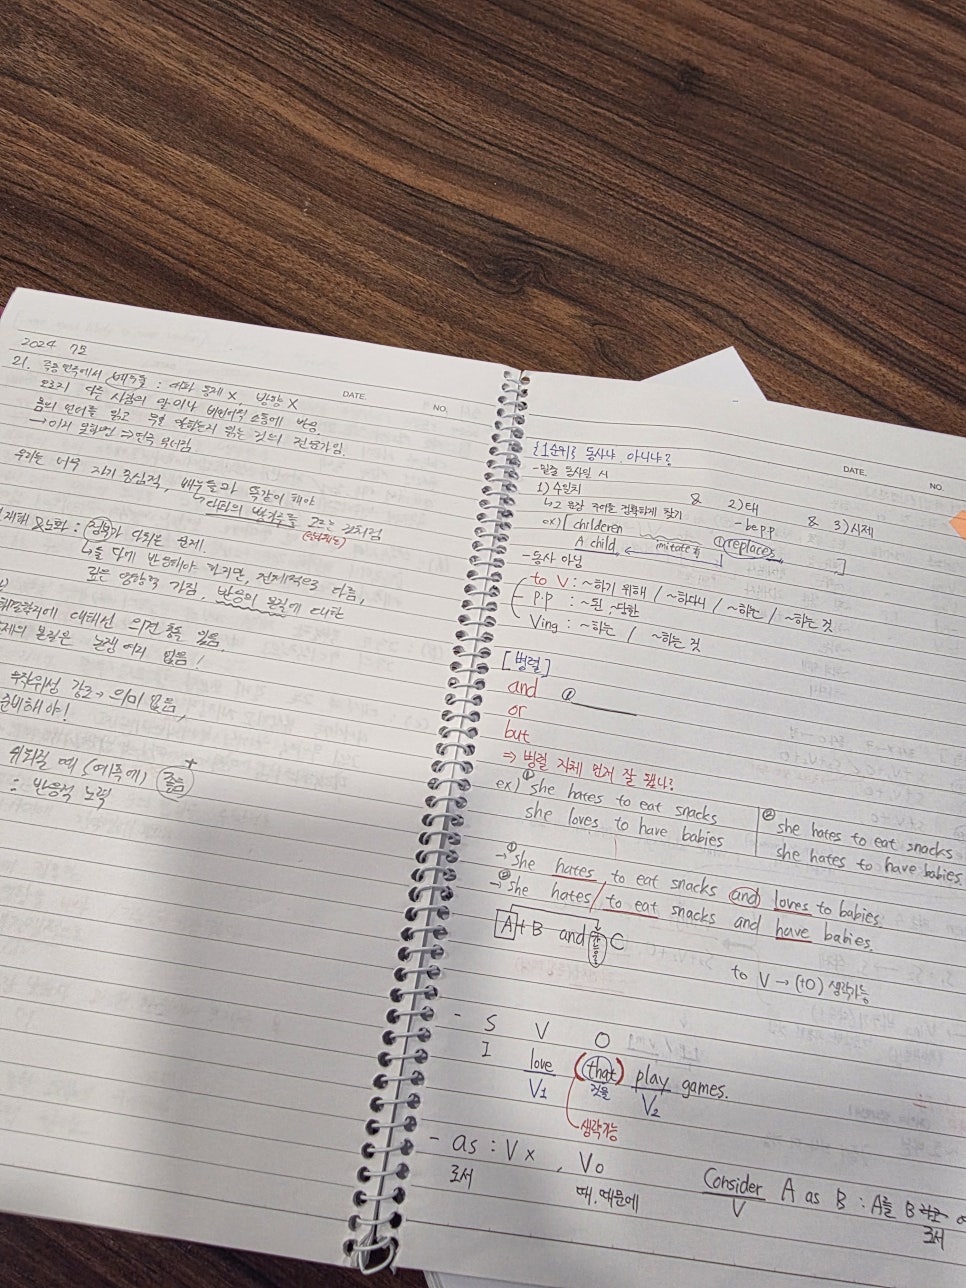 2024 7모
DATE.
NO.
21. 즉흥연극에서 배우들 : 여파 통제 X, 방향 X
오로지 다른 사람의 말이나 비언어적 소통에 반응.
몸의 언어를 읽고 무얼 말하는지 읽는 것의 전문가임.
→ 이거 못하면 ⇒ 연극 무너짐.
우리는 너무 자기중심적, 배우들과 똑같이 해야
타인의
: 정복가 다뤄는 문제.
↳ 을 다게 반응해야 하지만, 전체적으로 다름,
깊은 영향력 가짐, 반응의 본질에 대한
대해선 의견 충돌 있음
본질은 논쟁 여지 없음!
강조 → 의미 없음,
준비해야!
쉬워질 때 (여름에) 졸음 +
∴ 반응적 노력
DATE.
NO.
{1순위} 동사냐 아니냐?
- 밑줄 동사일 시
1) 수일치 & 2) 태 & 3) 시제
↳ 문장 주어를 정확하게 찾기
- be p.p
ex) [ childeren
A child imitate ① replaces ]
- 동사 아님
to V : ~하기 위해 / ~하다니 / ~하는 / ~하는 것
p.p : ~된 ~당한
Ving : ~하는 / ~하는 것
[병렬]
and ①
or
but
⇒ 병렬 자체 먼저 잘 됐나?
ex) ① she hates to eat snacks
she loves to have babies
② she hates to eat snacks
she hates to have babies.
→ ① she hates to eat snacks and loves to babies.
→ ② she hates / to eat snacks and have babies
A + B and C
to V → (to) 생략가능
- S V O
I love (that) play games.
V₁ 것을 V₂
생략가능
- as : V x , V o
로서 때, 때문에
Consider A as B : A를 B
V 로서